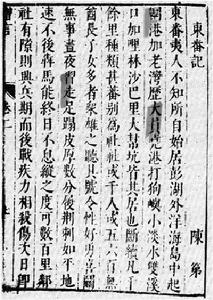 東番記 陳第
東番夷人不知所自始居彭湖外洋海島中起
魍港加老灣歷大員堯港打狗嶼小淡水雙溪
口加哩林沙巴里大幫坑皆其居也斷續凡千
餘里種類甚蕃別為社社或千人或五六百無
酋長子女多者眾雄之聽其號令性好勇喜鬪
無事晝夜習走足蹋皮厚數分履荊刺如平地
速不後犇馬能終日不息縱之度可數百里鄰
社有隙則興兵期而後戰疾力相殺傷次日即